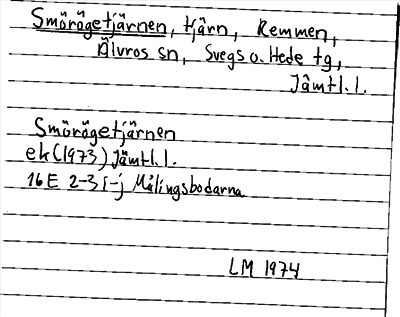 Smörögetjärnen, tjärn, Remmen,
Älvros sn, Svegs o. Hede tg,
Jämtl. l.
Smörögetjärnen
ek (1973) Jämtl. l.
16E 2-3 i-j Målingsbodarna
LM 1974